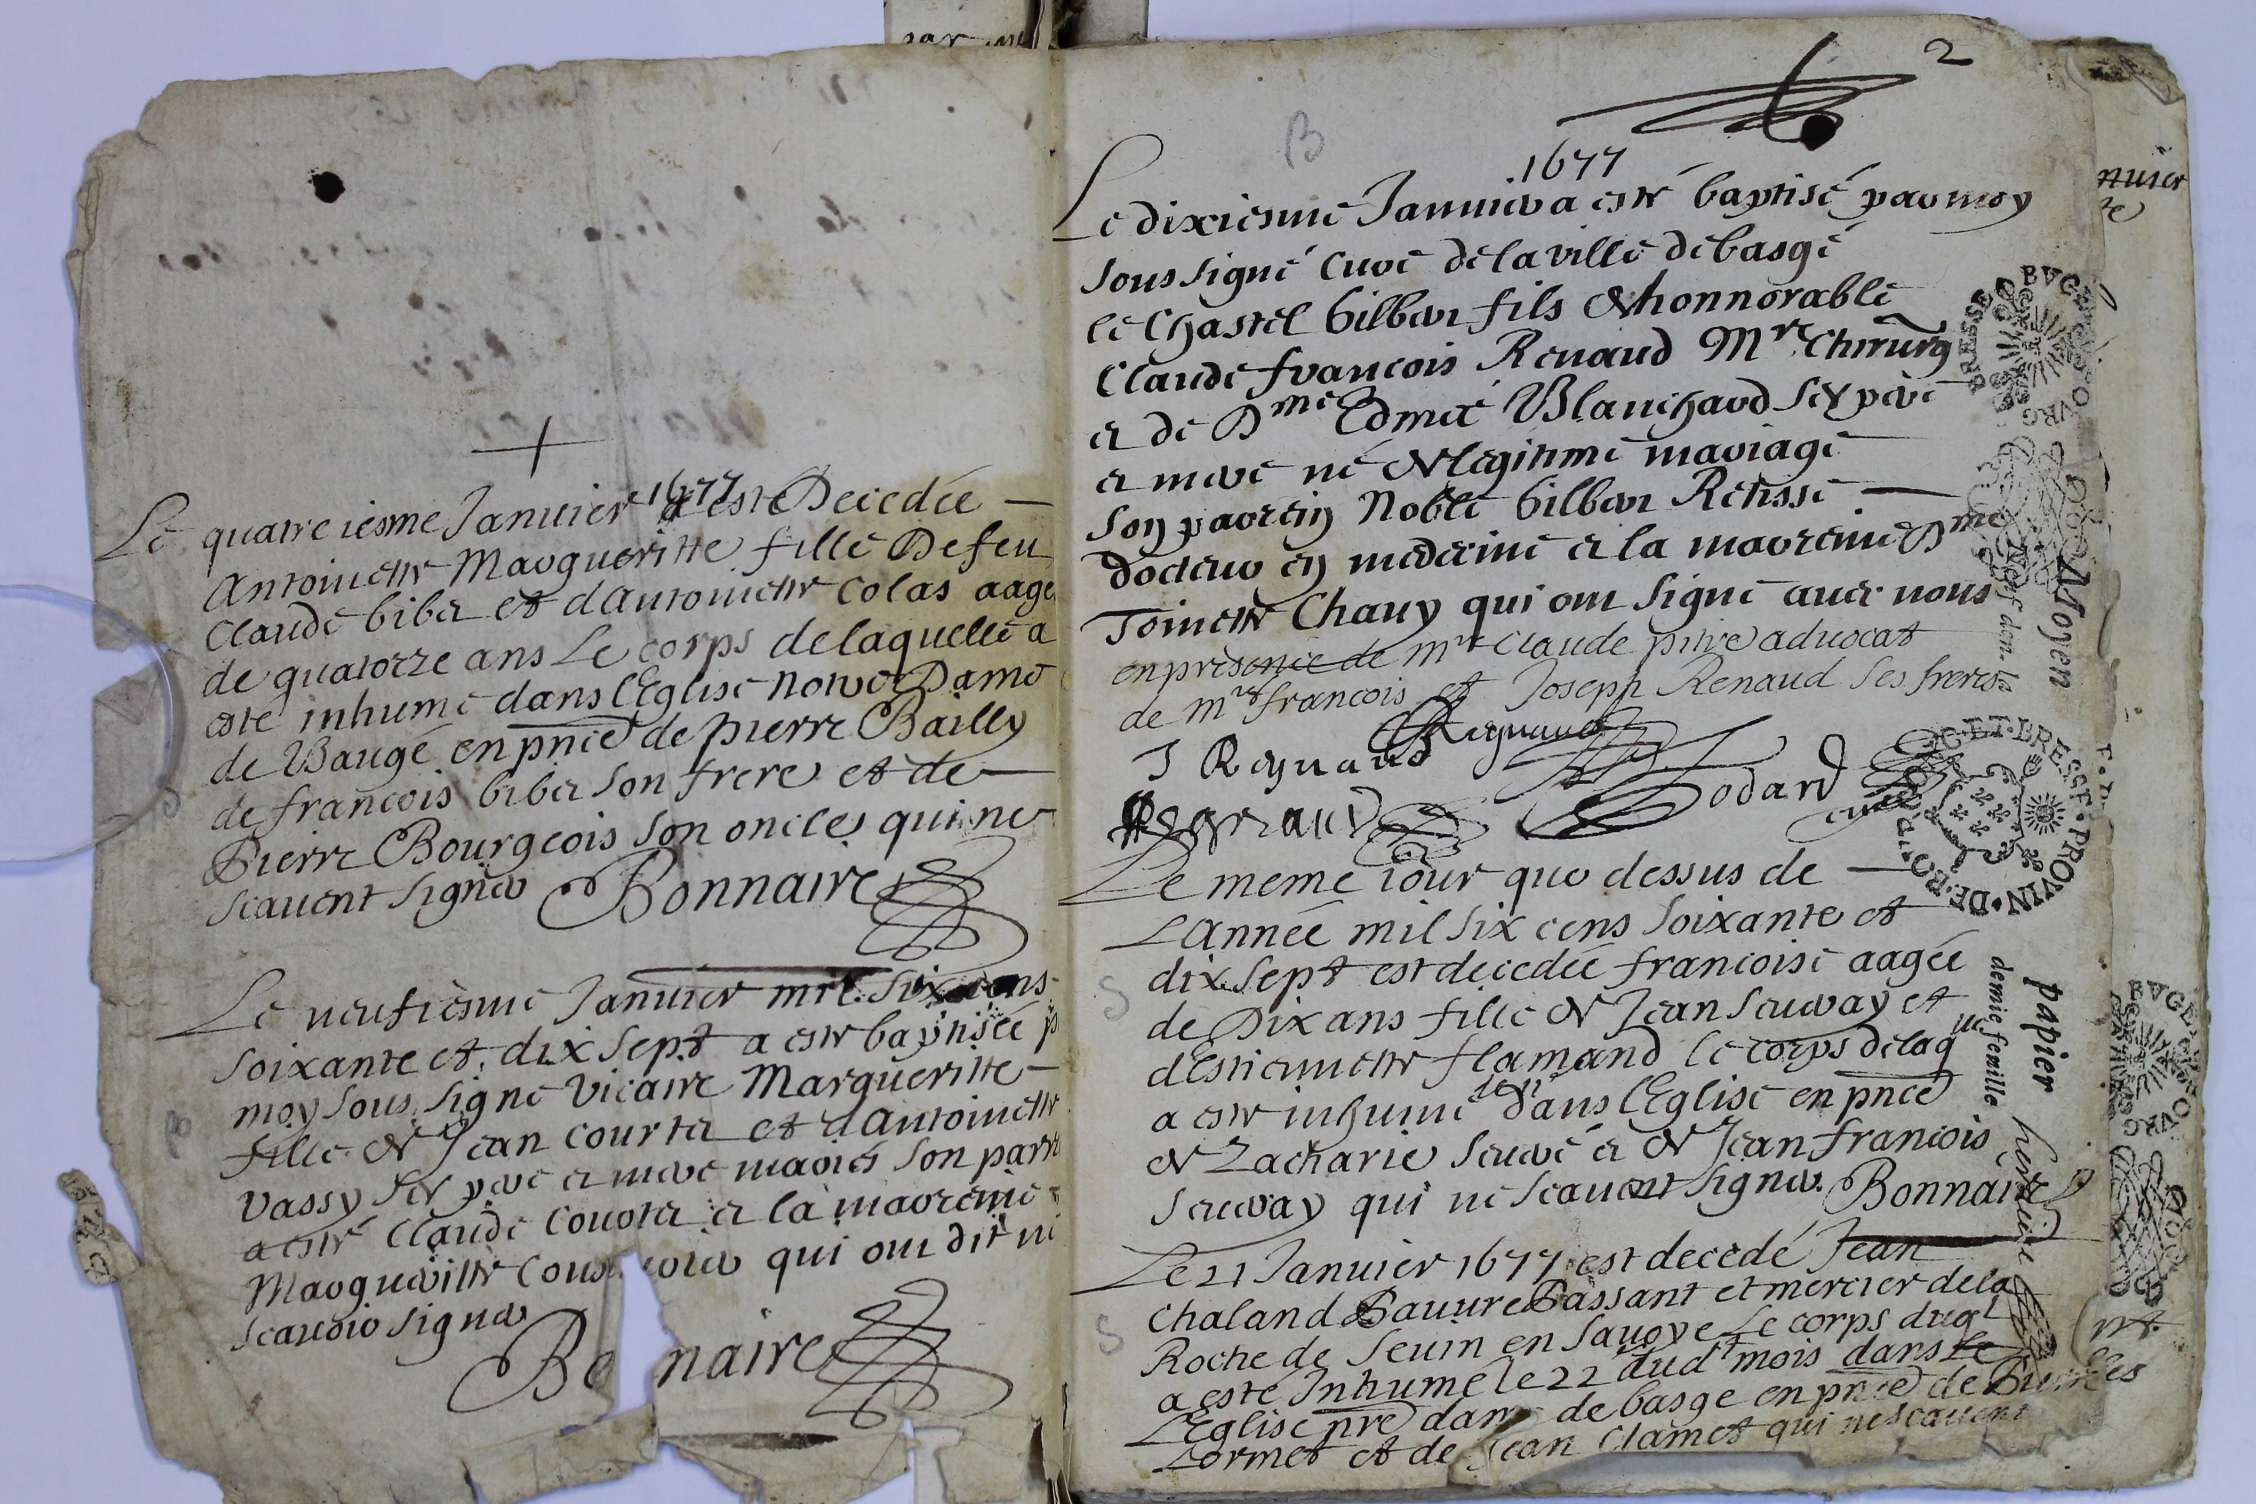 Le quatre iesme Januier 1677 a esté Decedée
Antoinette Margueritte fille De feu
Claude biber et dantoinette Colas aage
de quatorze ans Le corps de laquelle a
esté inhumé dans lEglise notre Dame
de Baugé en pnce de pierre Bailly
de francois biber son frere et de
Pierre Bourgeois son oncles qui ne
scauent signer Bonnaire
Le neufiesme Januier mil six cens
soixante et dix sept a este baptisée p
moy sous signé vicaire Margueritte
fille de Jean courter et dantoinette
vassy ses pere et mere mariés son parr
a esté Claude Courter et la marenne
Margueritte qui ont dit ne
scauoir signer
Bo naire
2
B
1677
Le dixiesme Januier a esté baptisé par moy
soussigné Curé de la ville de basgé
le Chastel Gilber fils de honnorable
Claude francois Renaud Mre Chirurg
et de Dme Edmée Blanchard ses pere
et mere né de legitime mariage
son parrein Noble Gilber Retisse
docteur en medecine et la marenne Dme
Toinette Chauy qui ont signé auec nous
en presence de mre Claude pitre aduocat
de mre francois et Joseph Renaud ses freres
J Reynaud Regnaud
Godard
curé
Le meme iour que dessus de
LAnnée mil six cens soixante et
dix sept est decedée francoise aagée
de Dix ans fille de Jean seruay et
dEstiennette flamand le corps delaqlle
a este inhumé dans lEglise en pnce
de Zacharie serué et de Jean francois
seruay qui ne scauent signer Bonnaire
S
Le 21 Januier 1677 est decedé Jean
Chaland Pauure Passant et mercier de la
Roche de Seuin en Sauoye Le corps duqt
a esté Inhumé le 22 dudt mois dans le
LEglise nre dame de basge en pnce de
Lormet et de Jean Clamet qui ne scauent
S
BVGEY
BRESSE
Moyen
Neuf den. la
G·ET·BRESSE·PROVIN·DE·BO
papier
demie feuille